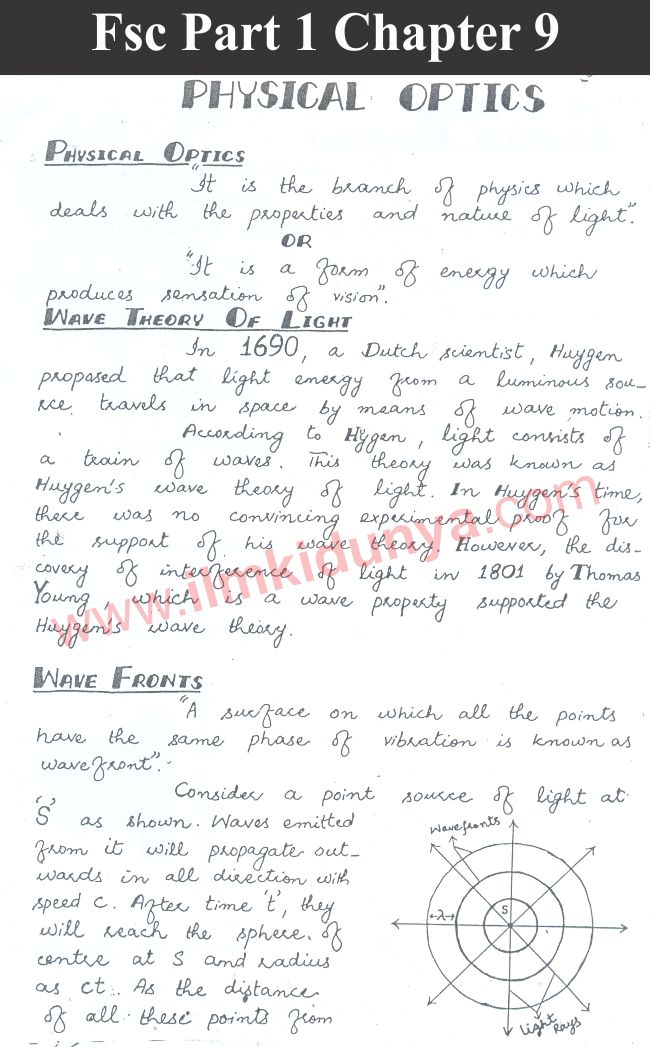 Fsc Part 1 Chapter 9
PHYSICAL OPTICS
PHYSICAL OPTICS
"It is the branch of physics which
deals with the properties and nature of light".
OR
"It is a form of energy which
produces sensation of vision".
WAVE THEORY OF LIGHT
In 1690, a Dutch scientist, Huygen
proposed that light energy from a luminous sou-
rce travels in space by means of wave motion.
According to Hygen, light consists of
a train of waves. This theory was known as
Huygen's wave theory of light. In Huygen's time,
there was no convincing experimental proof for
the support of his wave theory. However, the dis-
covery of interference of light in 1801 by Thomas
Young, which is a wave property supported the
Huygen's wave theory.
www.ilmkidunya.com
WAVE FRONTS
"A surface on which all the points
have the same phase of vibration is known as
wavefront".
Consider a point source of light at
'S' as shown. Waves emitted
from it will propagate out-
wards in all direction with
speed c. After time 't', they
will reach the sphere. of
centre at S and radius
as ct.. As the distance
of all these points from
Wavefronts
S
λ
Light Rays